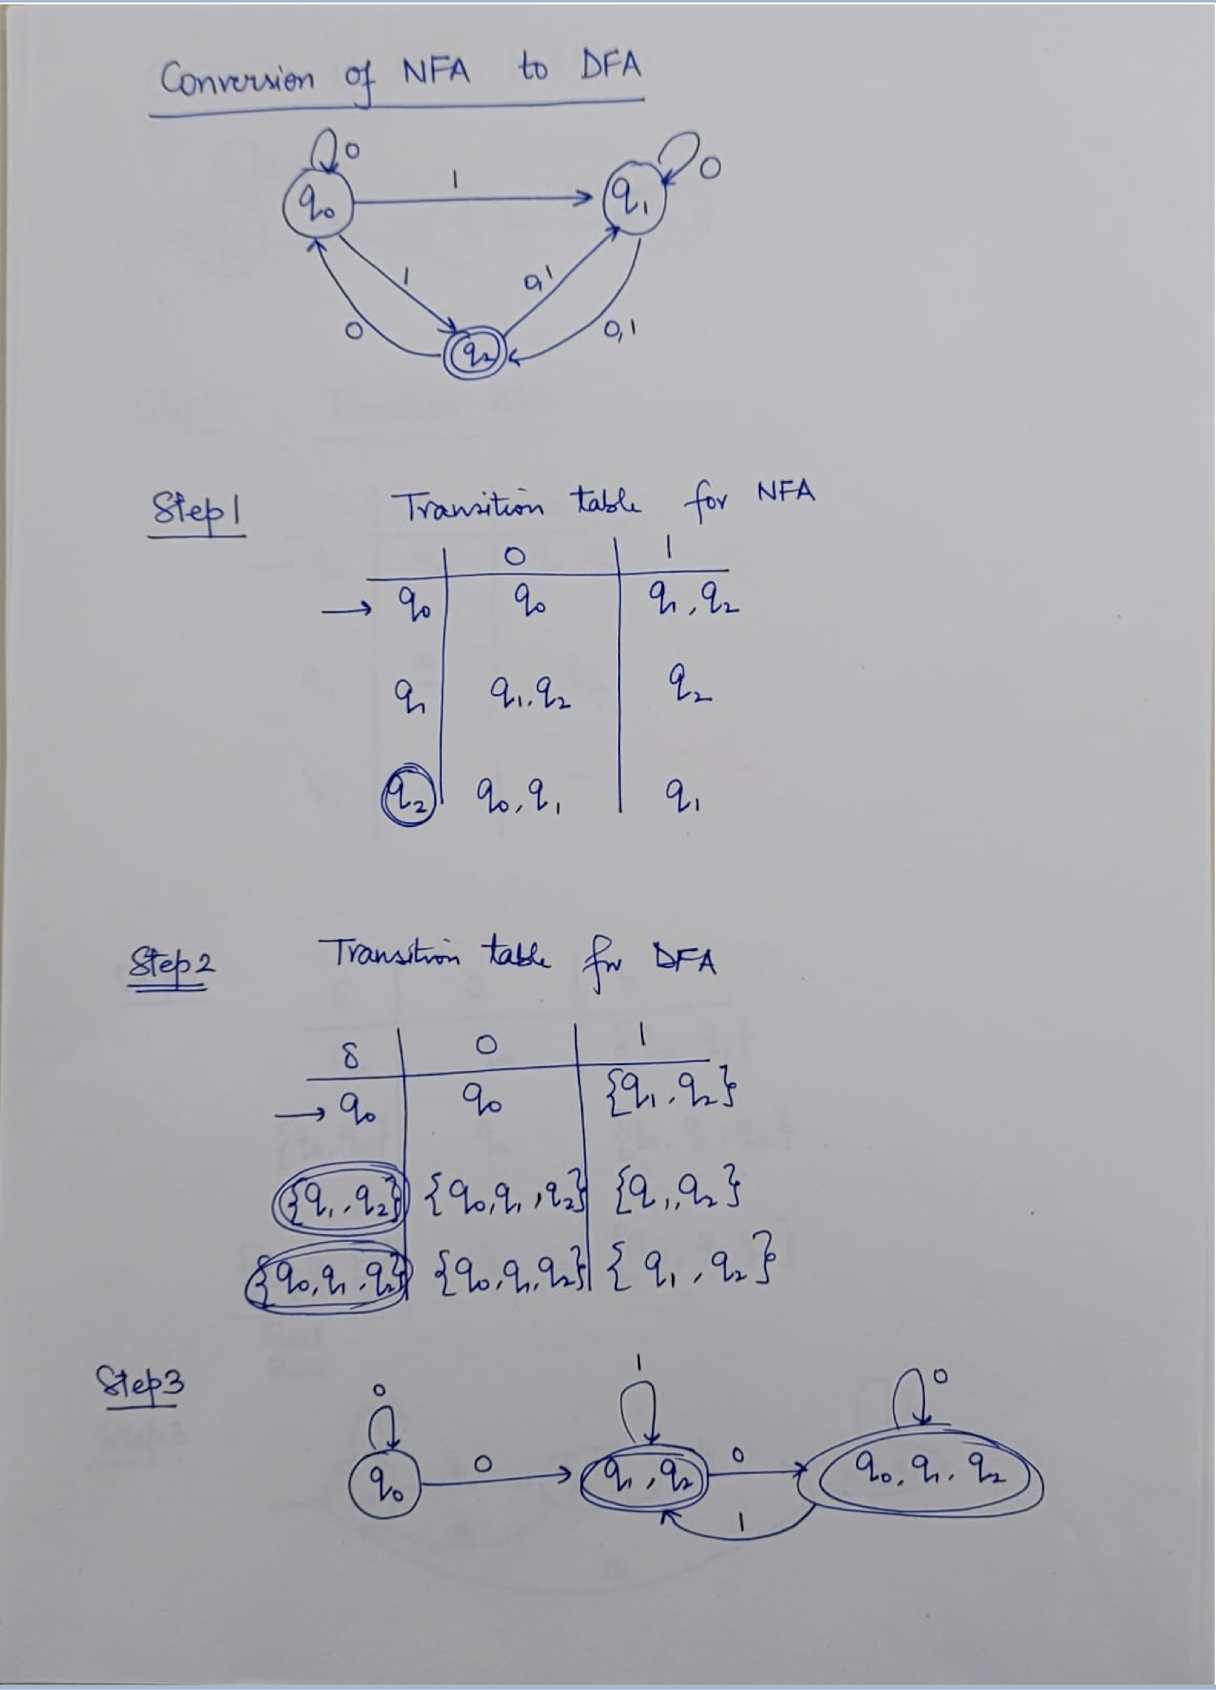 Conversion of NFA to DFA
0
0
q₀ 1 q₁
1 0,1
0 0,1
q₂
Step 1 Transition table for NFA
0 1
→ q₀ q₀ q₁, q₂
q₁ q₁, q₂ q₂
q₂ q₀, q₁ q₁
Step 2 Transition table for DFA
δ 0 1
→ q₀ q₀ {q₁, q₂}
{q₁, q₂} {q₀, q₁, q₂} {q₁, q₂}
{q₀, q₁, q₂} {q₀, q₁, q₂} {q₁, q₂}
Step 3
0 1 0
q₀ 0 q₁, q₂ 0 q₀, q₁, q₂
1